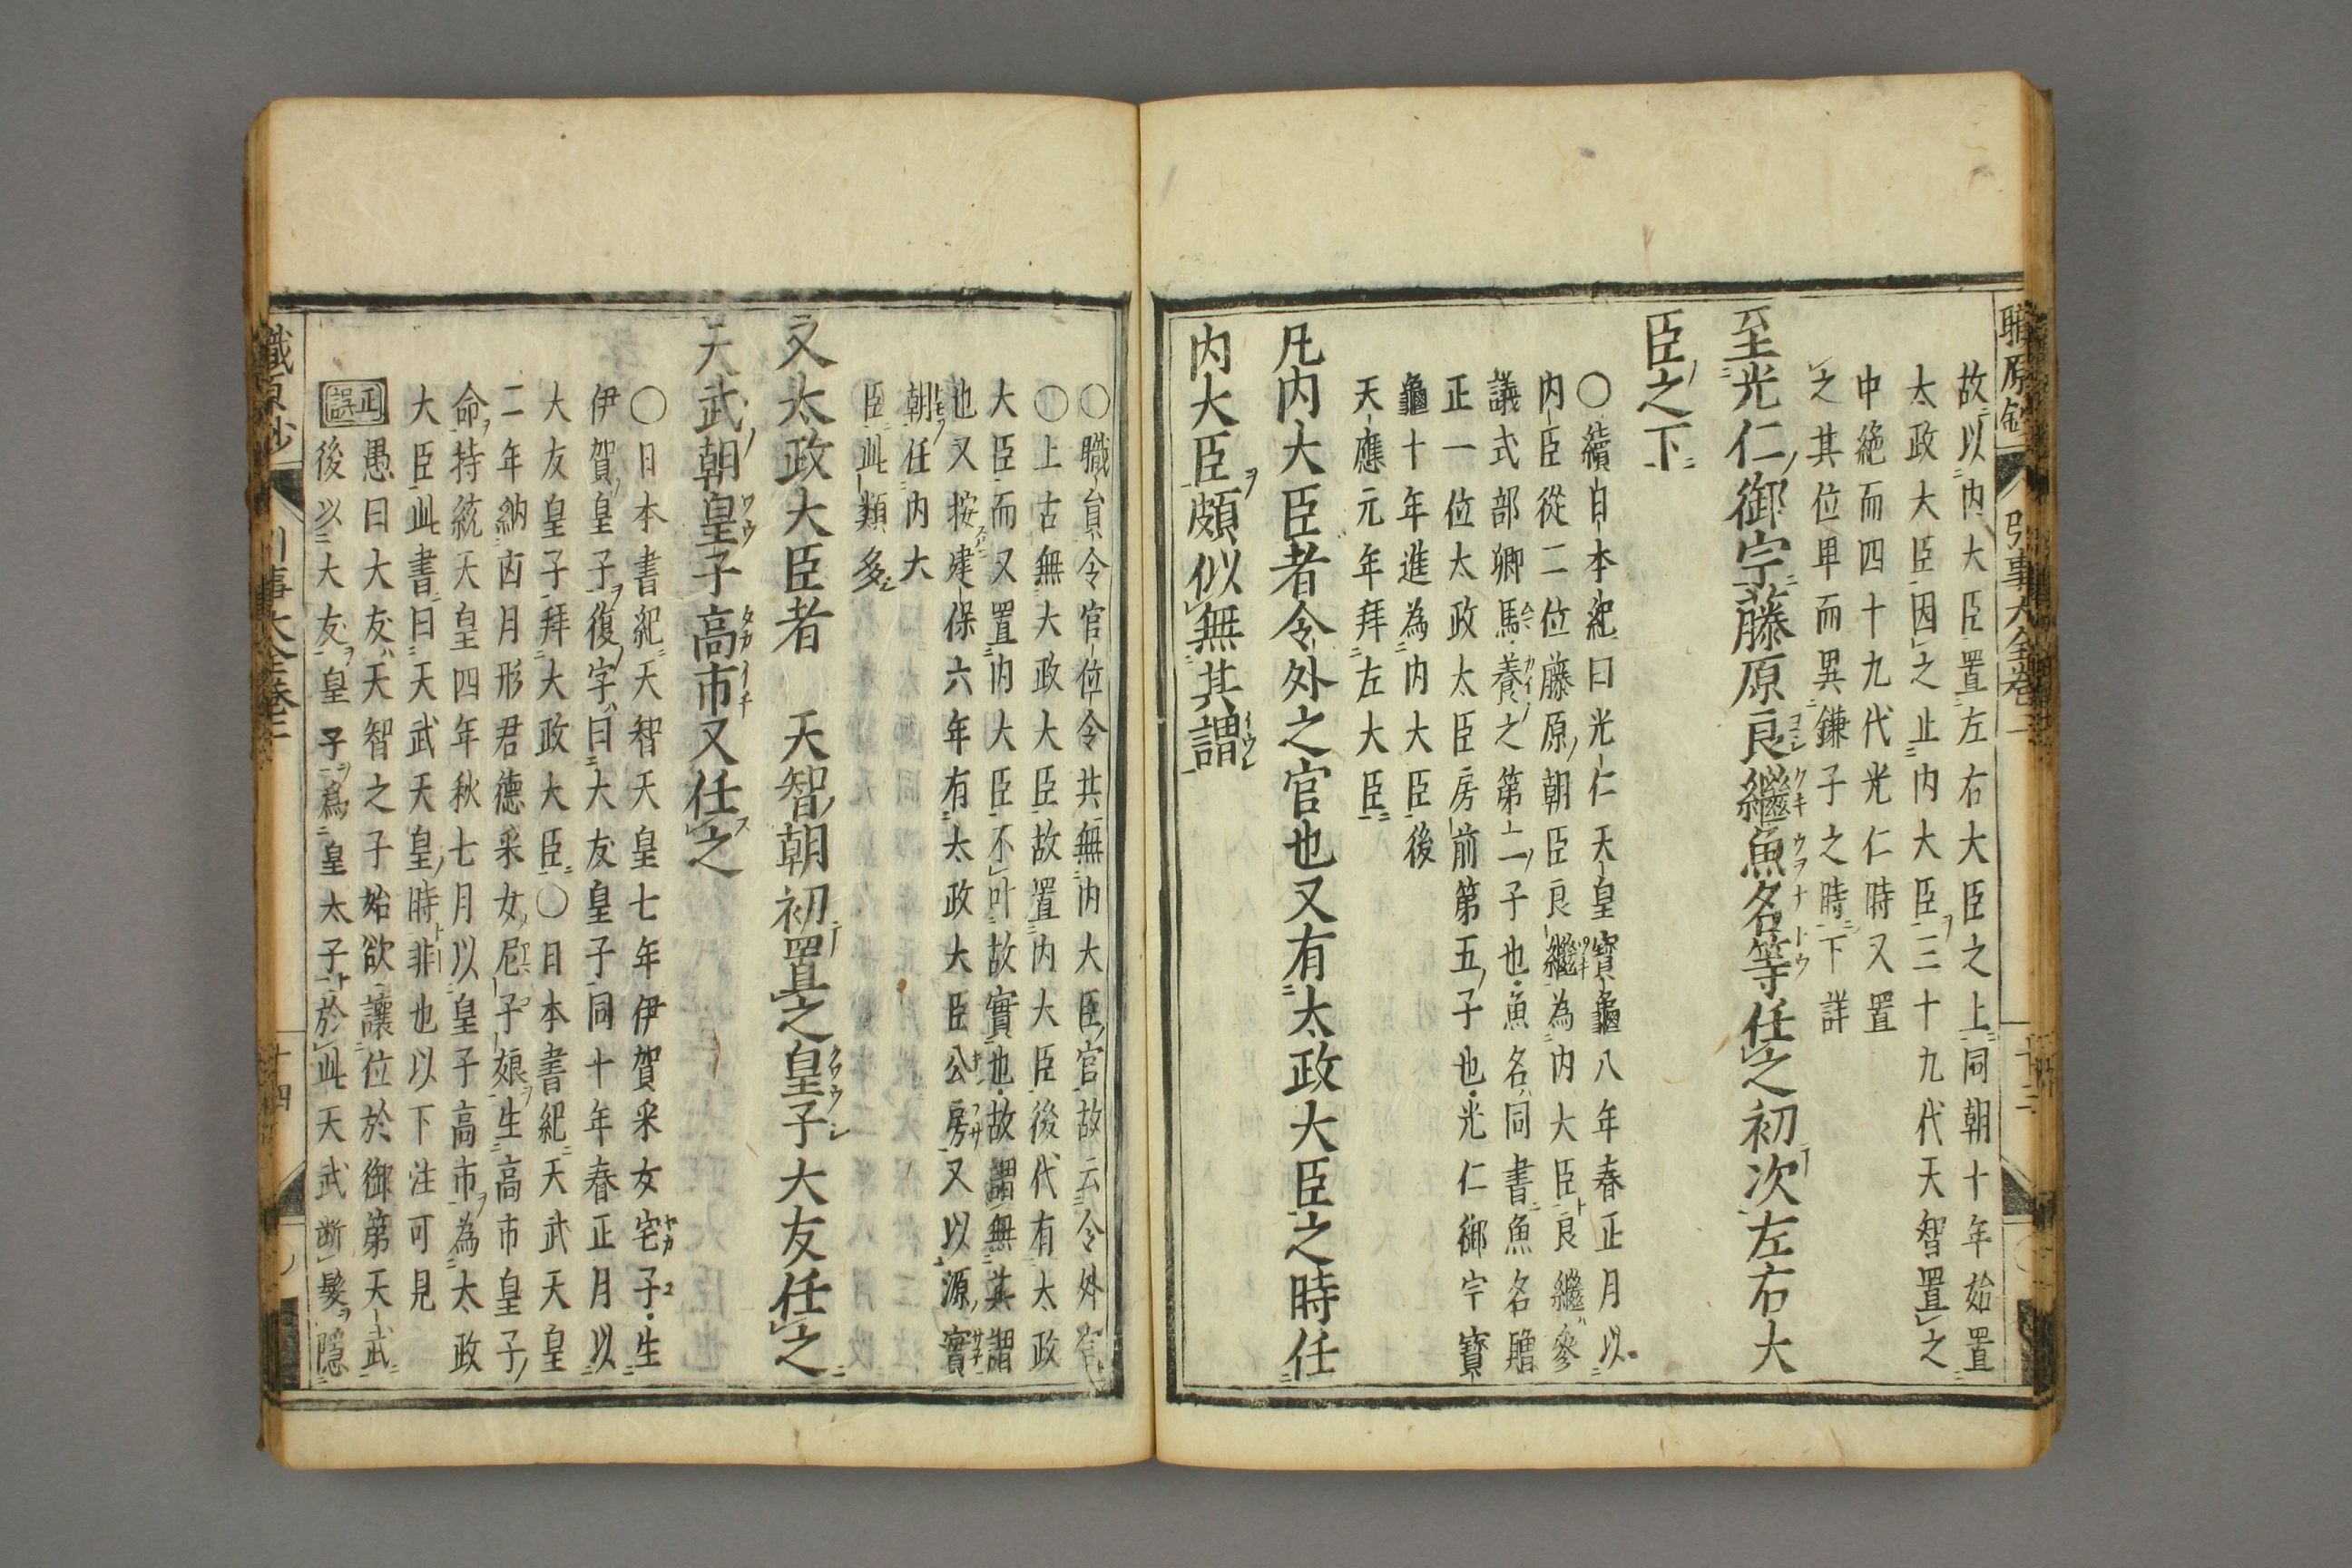 故以内大臣置左右大臣之上同朝十年始置
太政大臣因之止内大臣三十九代天智置之
中絶而四十九代光仁時又置
之其位卑而異鎌子之時下詳
至光仁御宇藤原良繼魚名等任之初次左右大
臣之下
〇續日本紀曰光仁天皇寶龜八年春正月以
内臣從二位藤原朝臣良繼為内大臣良繼參
議式部卿馬養之第二子也魚名同書魚名贈
正一位太政大臣房前第五子也光仁御宇寶
龜十年進為内大臣後
天應元年拜左大臣
凡内大臣者令外之官也又有太政大臣之時任
内大臣頗似無其謂
〇職員令官位令共無内大臣官故云令外官
〇上古無大政大臣故置内大臣後代有太政
大臣而又置内大臣不叶故實也故謂無其謂
也又按建保六年有太政大臣公房又以源實
朝任内大
臣此類多
又太政大臣者 天智朝初置之皇子大友任之
天武朝皇子高市又任之
〇日本書紀天智天皇七年伊賀采女宅子生
伊賀皇子復字曰大友皇子同十年春正月以
大友皇子拜大政大臣〇日本書紀天武天皇
二年納㐫月形君德采女尼子娘生高市皇子
命持統天皇四年秋七月以皇子高市為太政
大臣此書曰天武天皇時非也以下注可見
正誤 愚曰大友天智之子始欲讓位於御第天武
後以大友皇子爲皇太子於此天武断髮隱
職原鈔
引事大全卷二
十四